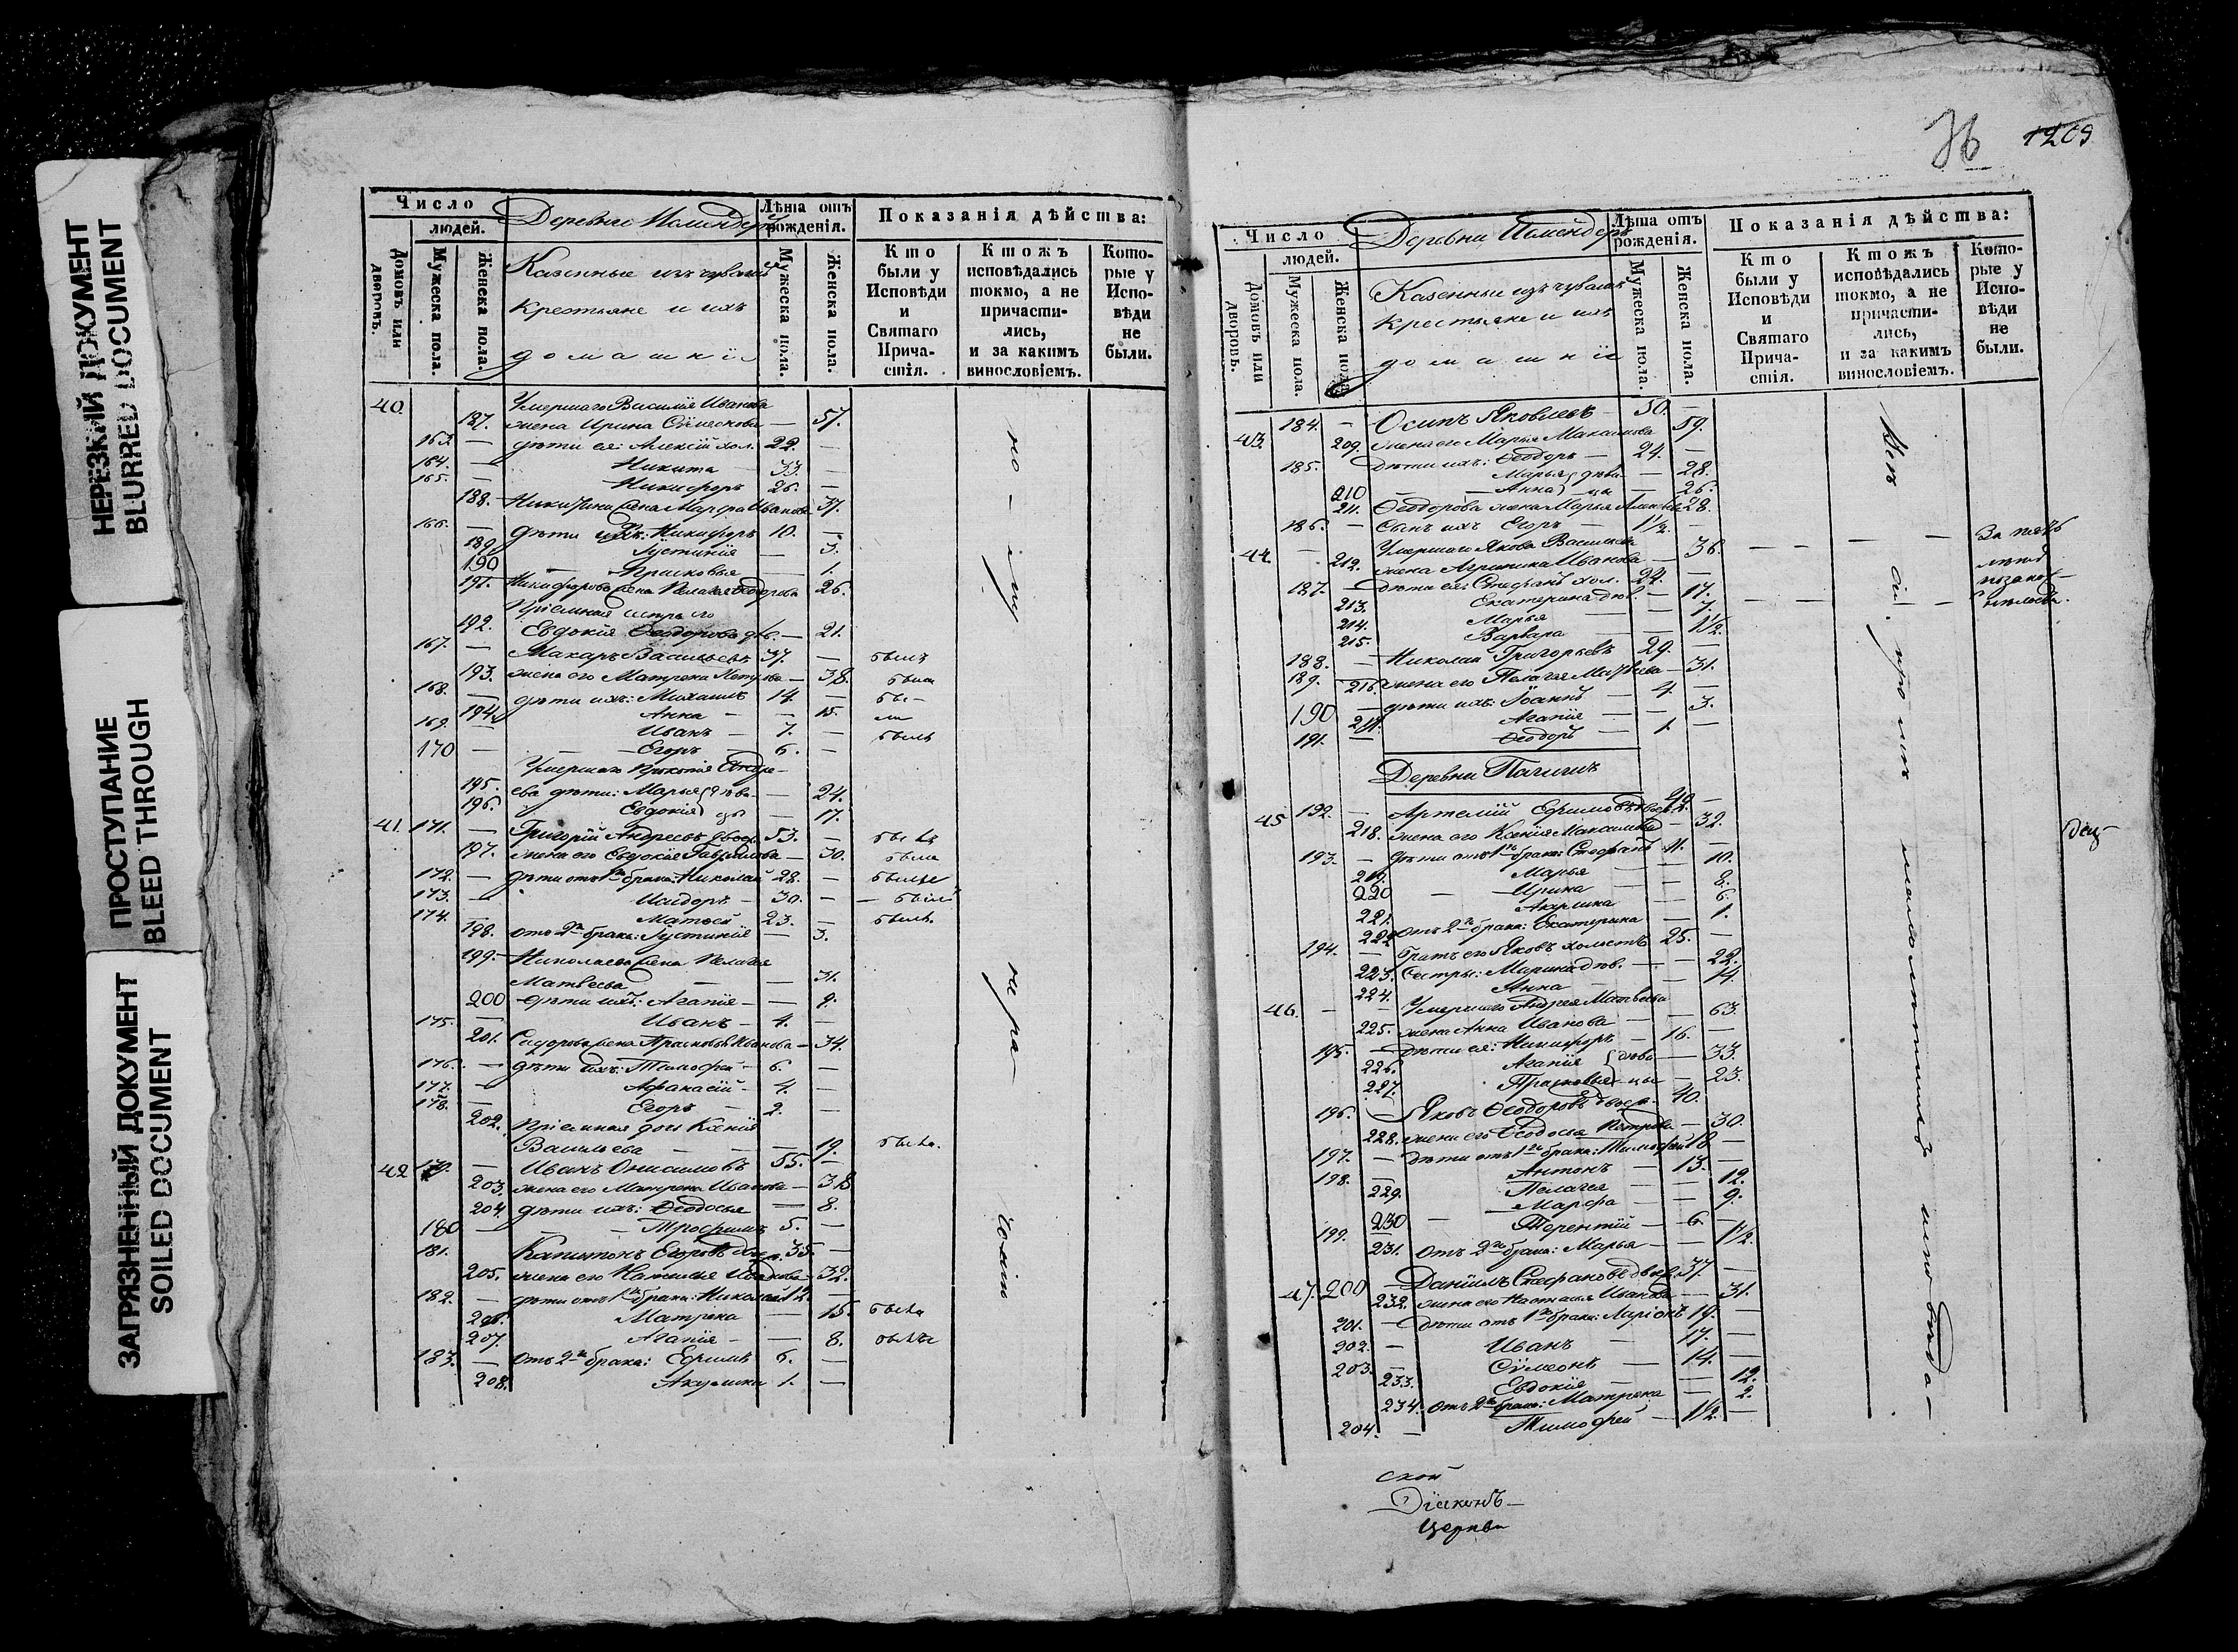 НЕРЕЗКИЙ ДОКУМЕНТ
BLURRED DOCUMENT
ПРОСТУПАНИЕ
BLEED THROUGH
ЗАГРЯЗНЕННЫЙ ДОКУМЕНТ
SOILED DOCUMENT
Число
людей.
Домовъ или дворовъ.
Мужеска пола.
Женска пола.
Деревни
Казенные изъ чувашъ
крестьяне и ихъ
домашнiе
Лѣта отъ рожденiя.
Мужеска пола.
Женска пола.
Показанiя дѣйства:
Кто были у Исповѣди и Святаго Причастiя.
Ктожъ исповѣдались токмо, а не причастились, и за какимъ винословiемъ.
Которые у Исповѣди не были.
40. Умершаго Василiя Иванова
187. жена Ирина Сѵмеонова — 57.
163. — дѣти ея: Алексiй хол. 22. —
164. — Никита 33. —
165. — Никифоръ 26. —
188. Никитина жена Марфа Иванова 37.
166. — дѣти ихъ: Никифоръ 10. —
189 Iустинiя — 3.
190 — Прасковья — 1.
191. Никифорова жена Пелагея Ѳеодорова 26.
192. Евдокiя Ѳеодорова дѣв. — 21.
167. — Макаръ Васильевъ 37. — былъ
193. жена его Матрена Петрова — 38. была
168. — дѣти ихъ: Михаилъ 14. — бы-
194. Анна — — 15. ли
169. — Иванъ — 7. — былъ
170 — — Егоръ 6. —
Умершаго Прокопiя Андре-
195. ева дѣти: Марья дѣви- — 24.
196. Евдокiя цы — 17.
41. 171. — Григорiй Андреевъ двоеж. 53. —
197. жена его Евдокiя Гаврилова — 30. была
172. — дѣти отъ 1го брака: Николай 28. —
173. — Исидоръ — 30. —
174. — Матвей 23. — былъ
198. отъ 2го брака: Iустинiя — 3.
199. Николаева жена Пелагея
Матвеева — — 31.
200 дѣти ихъ: Агапiя — — 9.
175. — Иванъ — 4. —
201. Сидорова жена Прасковья Иванова — 34.
176. — дѣти ихъ: Тимофей 6. —
177. — Афанасiй — 4. —
178. — Егоръ — 2. —
202. Прiемная дочь Ксенiя
Васильева — — 19. была.
42 179. — Иванъ Онисимовъ 55. —
203. жена его Матрена Иванова — 38
204. дѣти ихъ: Ѳеодосья — 8.
180 — — Трофимъ 5. —
181. Капитонъ Егоровъ 35. —
205. жена его Наталья — 32.
182. — дѣти отъ 1го брака: Николай 12. —
206. Матрена — 15. была
207. Агапiя — — 8. была
183. — отъ 2го брака: Ефимъ 6. —
208. Акулина 1. —
36 1209
Число
людей.
Домовъ или дворовъ.
Мужеска пола.
Женска пола.
Деревни
Казенныи изъ чувашъ
крестьяне и ихъ
домашнiе
Лѣта отъ рожденiя.
Мужеска пола.
Женска пола.
Показанiя дѣйства:
Кто были у Исповѣди и Святаго Причастiя.
Ктожъ исповѣдались токмо, а не причастились, и за какимъ винословiемъ.
Которые у Исповѣди не были.
184. — Осипъ Яковлевъ — 50. —
43. 209. жена его Марья Максимова 59.
185. дѣти ихъ: Ѳеодоръ — 24. —
Марья дѣви- — 28.
210 — Анна цы — 26.
211. Ѳеодорова жена Марья 28.
186. — Сынъ ихъ Егоръ — 1½. —
44. — Умершаго Якова Васильева
212. жена Агрипина Иванова — 36.
187. — дѣти ея: Стефанъ хол. 22. —
213. Екатерина дѣв. — 17.
214. Марья — 7.
215. Варвара — — 1½.
188. — Николай Григорьевъ 29. —
189. 216. жена его Пелагея — 31.
— дѣти ихъ: Iоаннъ — 4. —
190 217. Агапiя — — 3.
191. — Ѳеодоръ — 1. —
Деревни
45 192. — Артемiй Ефимовъ
218. жена его Ксенiя Максимова — 32.
193. — дѣти отъ 1го брака: Стефанъ 11. —
219. Марья — — 10.
220 — Ирина — — 8.
221. Акулина — — 6.
222 отъ 2го брака: Екатерина — 1.
194. — Братъ его Яковъ холостъ 25. —
223. Сестры: Марина дѣв. — — 22.
224. Анна — — 14.
46. — — Умершаго Андрея Матвеева
225. жена Анна Иванова — — 63.
195. — дѣти ея: Никифоръ — 16. —
226. Агапiя дѣви- — 33.
227. Прасковья цы — 23.
196. — Яковъ Ѳеодоровъ двоеж. 40.
228. жена его Ѳеодосья Петрова — 30.
197. — дѣти отъ 1го брака: Тимофей 18 —
198. — Антонъ — 13. —
229. Пелагея — — 12.
230 — Марфа — — 9.
199. — Терентiй — 6 —
231. отъ 2го брака: Марья — — 1½.
47. 200 — Данiилъ Стефановъ двоеж. 37. —
232. жена его Настасья Иванова — 31.
201. — дѣти отъ 1го брака: Ларiонъ 19. —
202. — Иванъ — 17. —
203. — Сѵмеонъ — 14. —
233. Евдокiя — — 12.
234. отъ 2го брака: Матрена — 2.
204. — Тимофей — 1½. —
ской
Дiаконъ—
Церкви